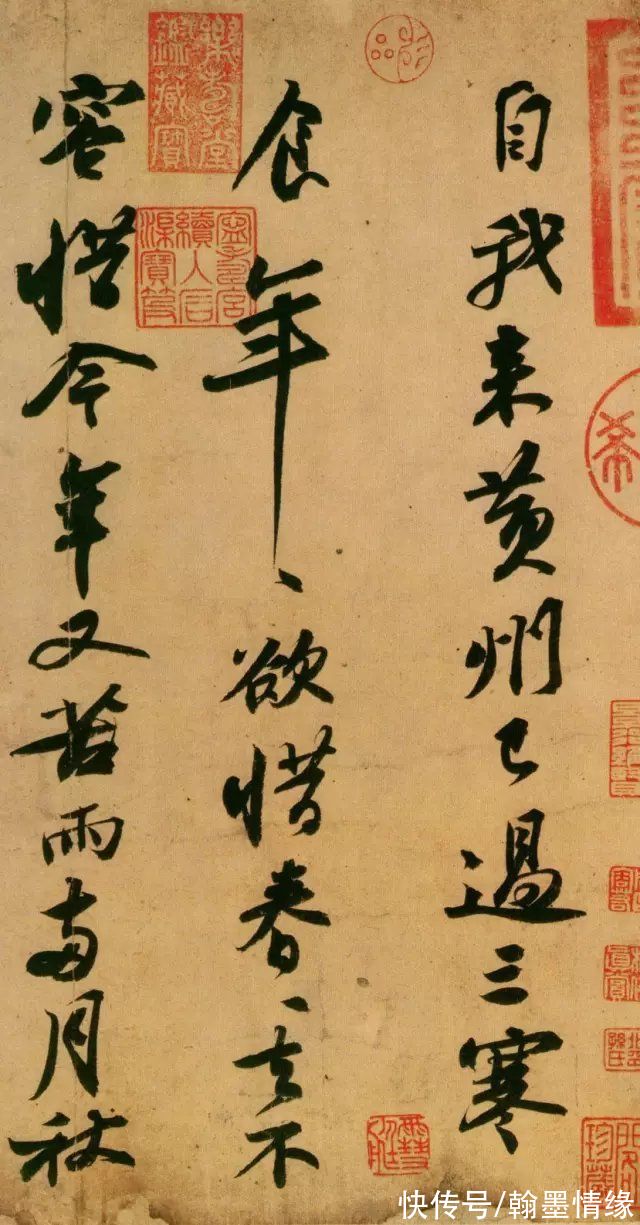 自我来黄州已過三寒
食年、欲惜春、去不
容惜今年又苦雨兩月秋
快传号/翰墨情缘